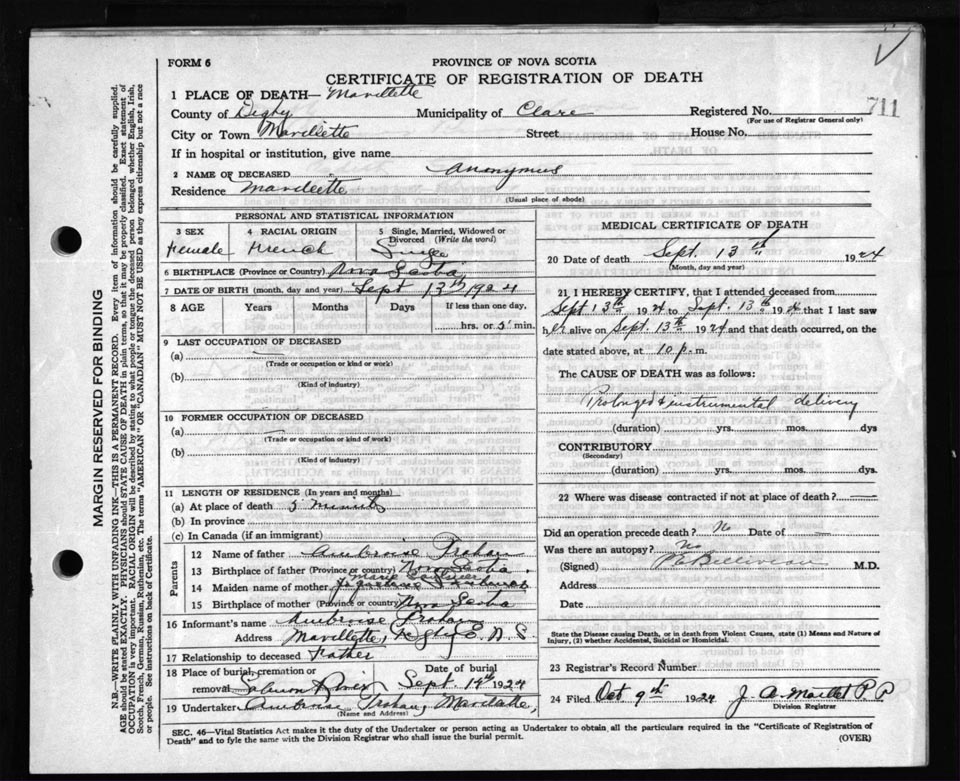 FORM 6
PROVINCE OF NOVA SCOTIA
CERTIFICATE OF REGISTRATION OF DEATH
1 PLACE OF DEATH— Mavillette
County of Digby Municipality of Clare Registered No. 711
(For use of Registrar General only)
City or Town Mavillette Street House No.
If in hospital or institution, give name
2 NAME OF DECEASED Anonymus
Residence Mavillette
(Usual place of abode)
PERSONAL AND STATISTICAL INFORMATION
3 SEX 4 RACIAL ORIGIN 5 Single, Married, Widowed or
Divorced (Write the word)
Female French Single
6 BIRTHPLACE (Province or Country) Nova Scotia
7 DATE OF BIRTH (month, day and year) Sept 13th 1924
8 AGE Years Months Days If less than one day,
hrs. or 5 min.
9 LAST OCCUPATION OF DECEASED
(a) —
(Trade or occupation or kind or work)
(b)
(Kind of industry)
10 FORMER OCCUPATION OF DECEASED
(a) —
(Trade or occupation or kind of work)
(b)
(Kind of industry)
11 LENGTH OF RESIDENCE (In years and months)
(a) At place of death 5 minuts
(b) In province
(c) In Canada (if an immigrant)
Parents
12 Name of father Ambroise Trahan
13 Birthplace of father (Province or country) Nova Scotia
Marie
14 Maiden name of mother
15 Birthplace of mother (Province or country) Nova Scotia
16 Informant's name Ambroise Trahan
Address Mavillette, Digby Co. N. S.
17 Relationship to deceased Father
18 Place of burial, cremation or Date of burial
removal Salmon River Sept. 14th 1924
19 Undertaker Ambroise Trahan, Mavillette,
(Name and Address)
MEDICAL CERTIFICATE OF DEATH
20 Date of death Sept. 13th 1924
(Month, day and year)
21 I HEREBY CERTIFY, that I attended deceased from
Sept 13th 1924 to Sept. 13th 1924 that I last saw
her alive on Sept. 13th 1924 and that death occurred, on the
date stated above, at 10 p. m.
The CAUSE OF DEATH was as follows:
Prolonged & instrumental delivery
(duration) yrs. mos. dys
CONTRIBUTORY
(Secondary)
(duration) yrs. mos. dys.
22 Where was disease contracted if not at place of death? —
Did an operation precede death? No Date of —
Was there an autopsy? No
(Signed) Belliveau M.D.
Address
Date
State the Disease causing Death, or in death from Violent Causes, state (1) Means and Nature of
Injury, (2) whether Accidental, Suicidal or Homicidal.
23 Registrar's Record Number
24 Filed Oct 9th 1924 J. A. Maillet P. P.
Division Registrar
SEC. 46—Vital Statistics Act makes it the duty of the Undertaker or person acting as Undertaker to obtain all the particulars required in the "Certificate of Registration of
Death" and to fyle the same with the Division Registrar who shall issue the burial permit. (OVER)
MARGIN RESERVED FOR BINDING
N.B.—WRITE PLAINLY WITH UNFADING INK—THIS IS A PERMANENT RECORD. Every item of information should be carefully supplied.
AGE should be stated EXACTLY. PHYSICIANS should STATE CAUSE OF DEATH in plain terms, so that it may be properly classified. Exact statement of
OCCUPATION is very important. RACIAL ORIGIN will be described by stating to what people or tongue the deceased person belonged whether English, Irish,
Scotch, French, German, Russian, Ruthenian, etc. The terms "AMERICAN" OR "CANADIAN" MUST NOT BE USED as they express citizenship but not a race
or people. See instructions on back of Certificate.